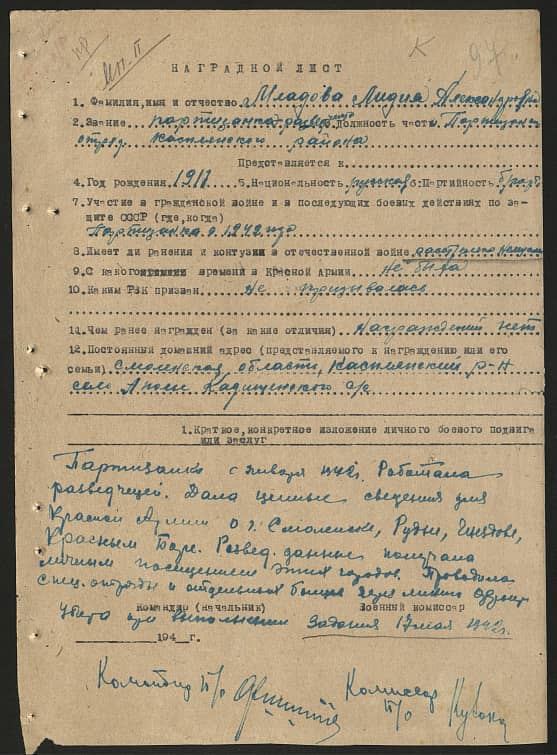 К
97
НАГРАДНОЙ ЛИСТ
1. Фамилия, имя и отчество Младова Лидия Александровна
2. Звание партизанка 3. Должность часть Партизанск.
отряд Касплянского района
Представляется к
4. Год рождения 1911 5. Национальность русская 6. Партийность б/парт.
7. Участие в гражданской войне и в последующих боевых действиях по за-
щите СССР (где, когда)
Партизанка с 1942 года
8. Имеет ли ранения и контузии в отечественной войне
9. С какого времени в Красной Армии не была
10. Каким РВК призван не призывалась
11. Чем ранее награжден (за какие отличия) Награждений нет
12. Постоянный домашний адрес (представляемого к награждению или его
семьи) Смоленская область, Касплянский р-н
село с/с
1. Краткое, конкретное изложение личного боевого подвига
или заслуг
Партизанка с января 1942г. Работала
разведчицей. Дала ценные сведения для
Красной Армии о г. Смоленске, Рудне,
Красным Боре. Развед. данные получала
личным посещением этих городов. Проводила
спец. отряды и отдельных бойцов через линию фронта
Командир (начальник) Военный комиссар
Убита при выполнении задания 17 мая 1942г.
194 г.
Командир п/о Комиссар
п/о